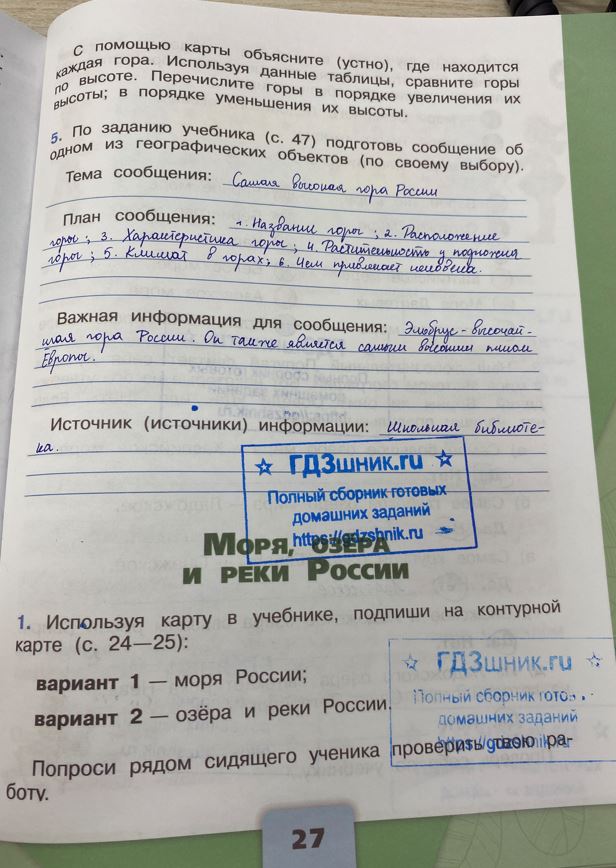 С помощью карты объясните (устно), где находится
каждая гора. Используя данные таблицы, сравните горы
по высоте. Перечислите горы в порядке увеличения их
высоты; в порядке уменьшения их высоты.
5. По заданию учебника (с. 47) подготовь сообщение об
одном из географических объектов (по своему выбору).
Тема сообщения: Самая высокая гора России
План сообщения: 1. Название горы; 2. Расположение
горы; 3. Характеристика горы; 4. Растительность у подножия
горы; 5. Климат в горах; 6. Чем привлекает человека.
Важная информация для сообщения: Эльбрус - высочай-
шая гора России. Он также является самым высоким пиком
Европы.
Источник (источники) информации: Школьная библиоте-
ка.
ГДЗшник.ru
Полный сборник готовых
домашних заданий
https://gdzshnik.ru
Моря, озёра
и реки России
1. Используя карту в учебнике, подпиши на контурной
карте (с. 24—25):
вариант 1 — моря России;
вариант 2 — озёра и реки России.
ГДЗшник.ru
Полный сборник готовых
домашних заданий
https://gdzshnik.ru
Попроси рядом сидящего ученика проверить твою ра-
боту.
27